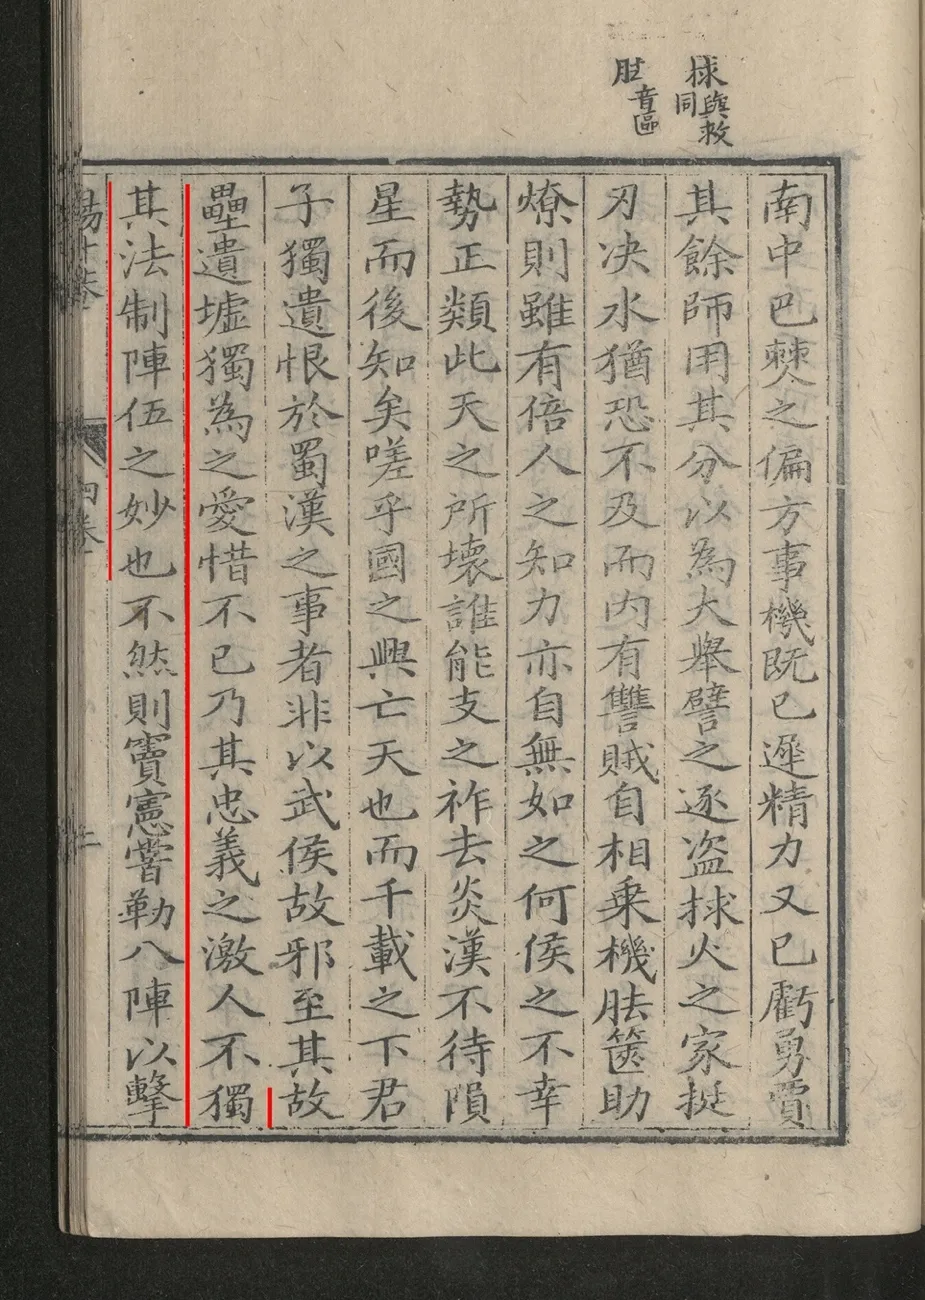 捄與救
同
胠
音區
南中巴僰之偏方事機既已遲精力又已虧勇賈
其餘師用其分以為大舉譬之逐盗捄火之家挺
刃决水猶恐不及而内有讐賊自相乗機胠篋助
燎則雖有倍人之知力亦自無如之何侯之不幸
勢正類此天之所壊誰能支之祚去炎漢不待隕
星而後知矣嗟乎國之興亡天也而千載之下君
子獨遺恨於蜀漢之事者非以武侯故邪至其故
壘遺墟獨為之愛惜不已乃其忠義之激人不獨
其法制陣伍之妙也不然則竇憲嘗勒八陣以擊